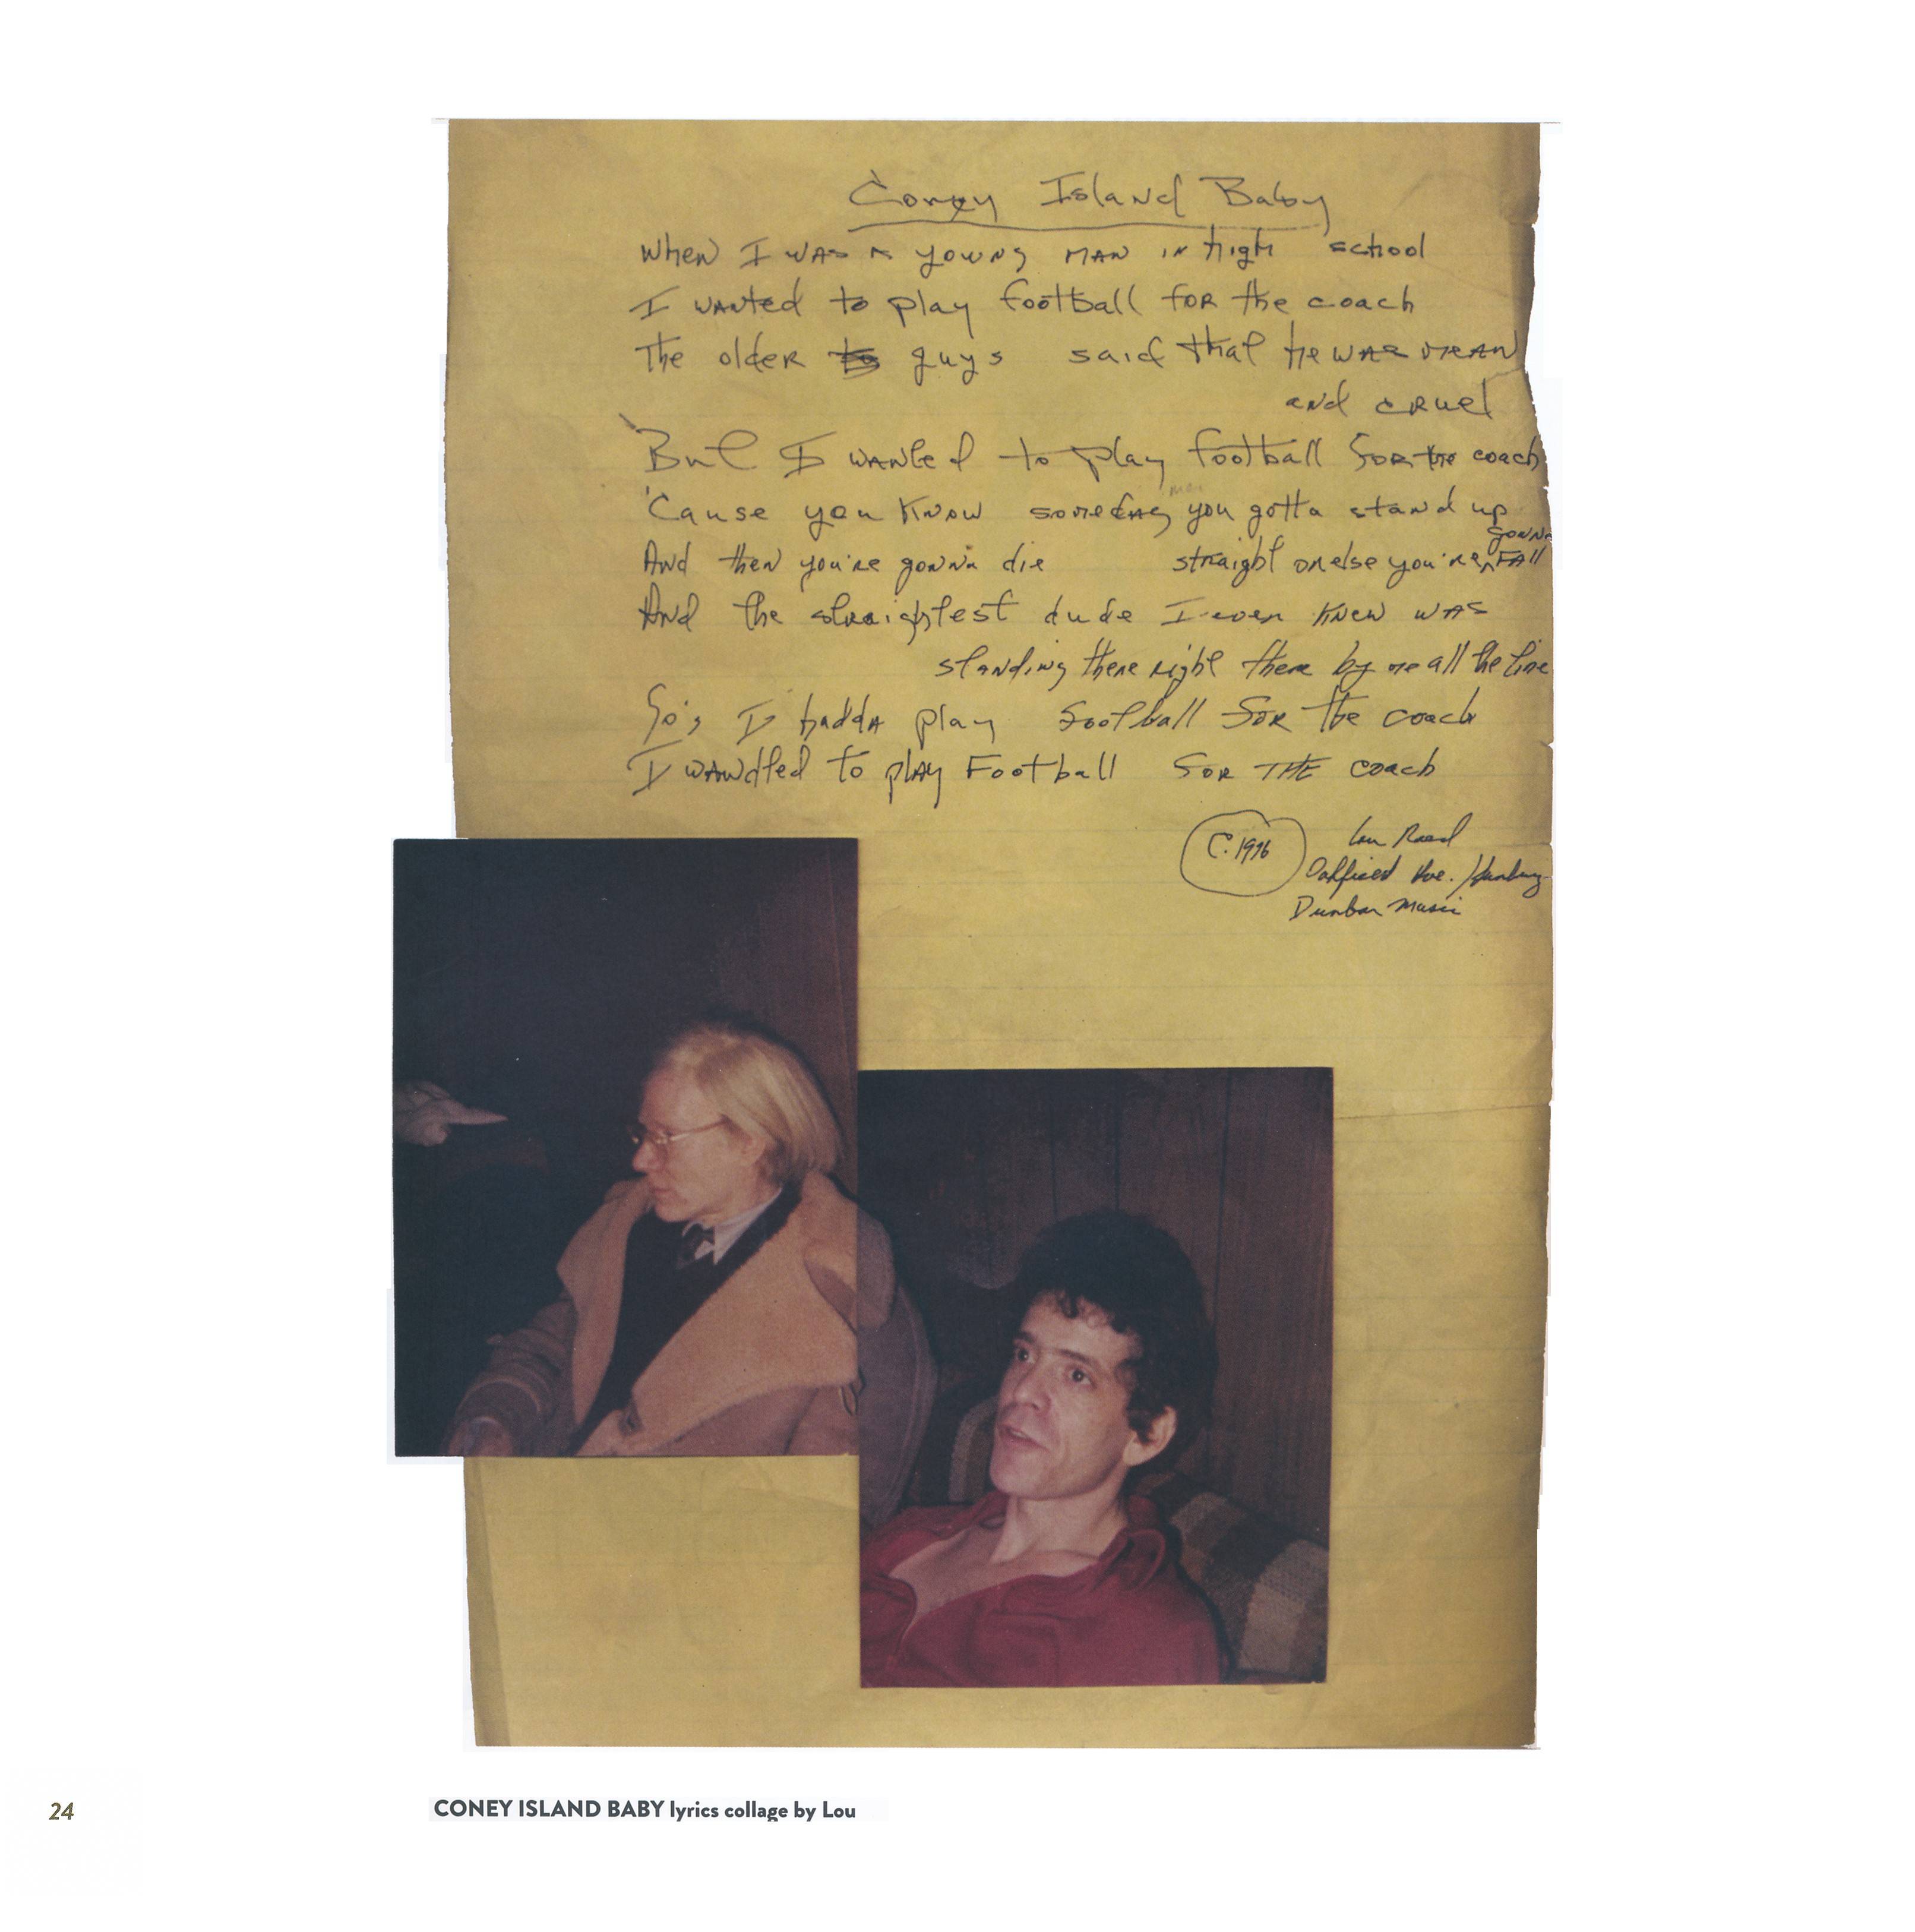 Coney Island Baby
When I was a young man in high school
I wanted to play football for the coach
The older guys said that he was mean
and cruel
But I wanted to play football for the coach
'Cause you know someday man you gotta stand up
And then you're gonna die straight or else you're gonna FAll
And the straightest dude I ever knew was
standing there right there by me all the time
So's I hadda play football for the coach
I wandted to play Football for THE coach
C. 1976 Lou Reed
Oakfield Ave. /
Dunbar Music
24 CONEY ISLAND BABY lyrics collage by Lou